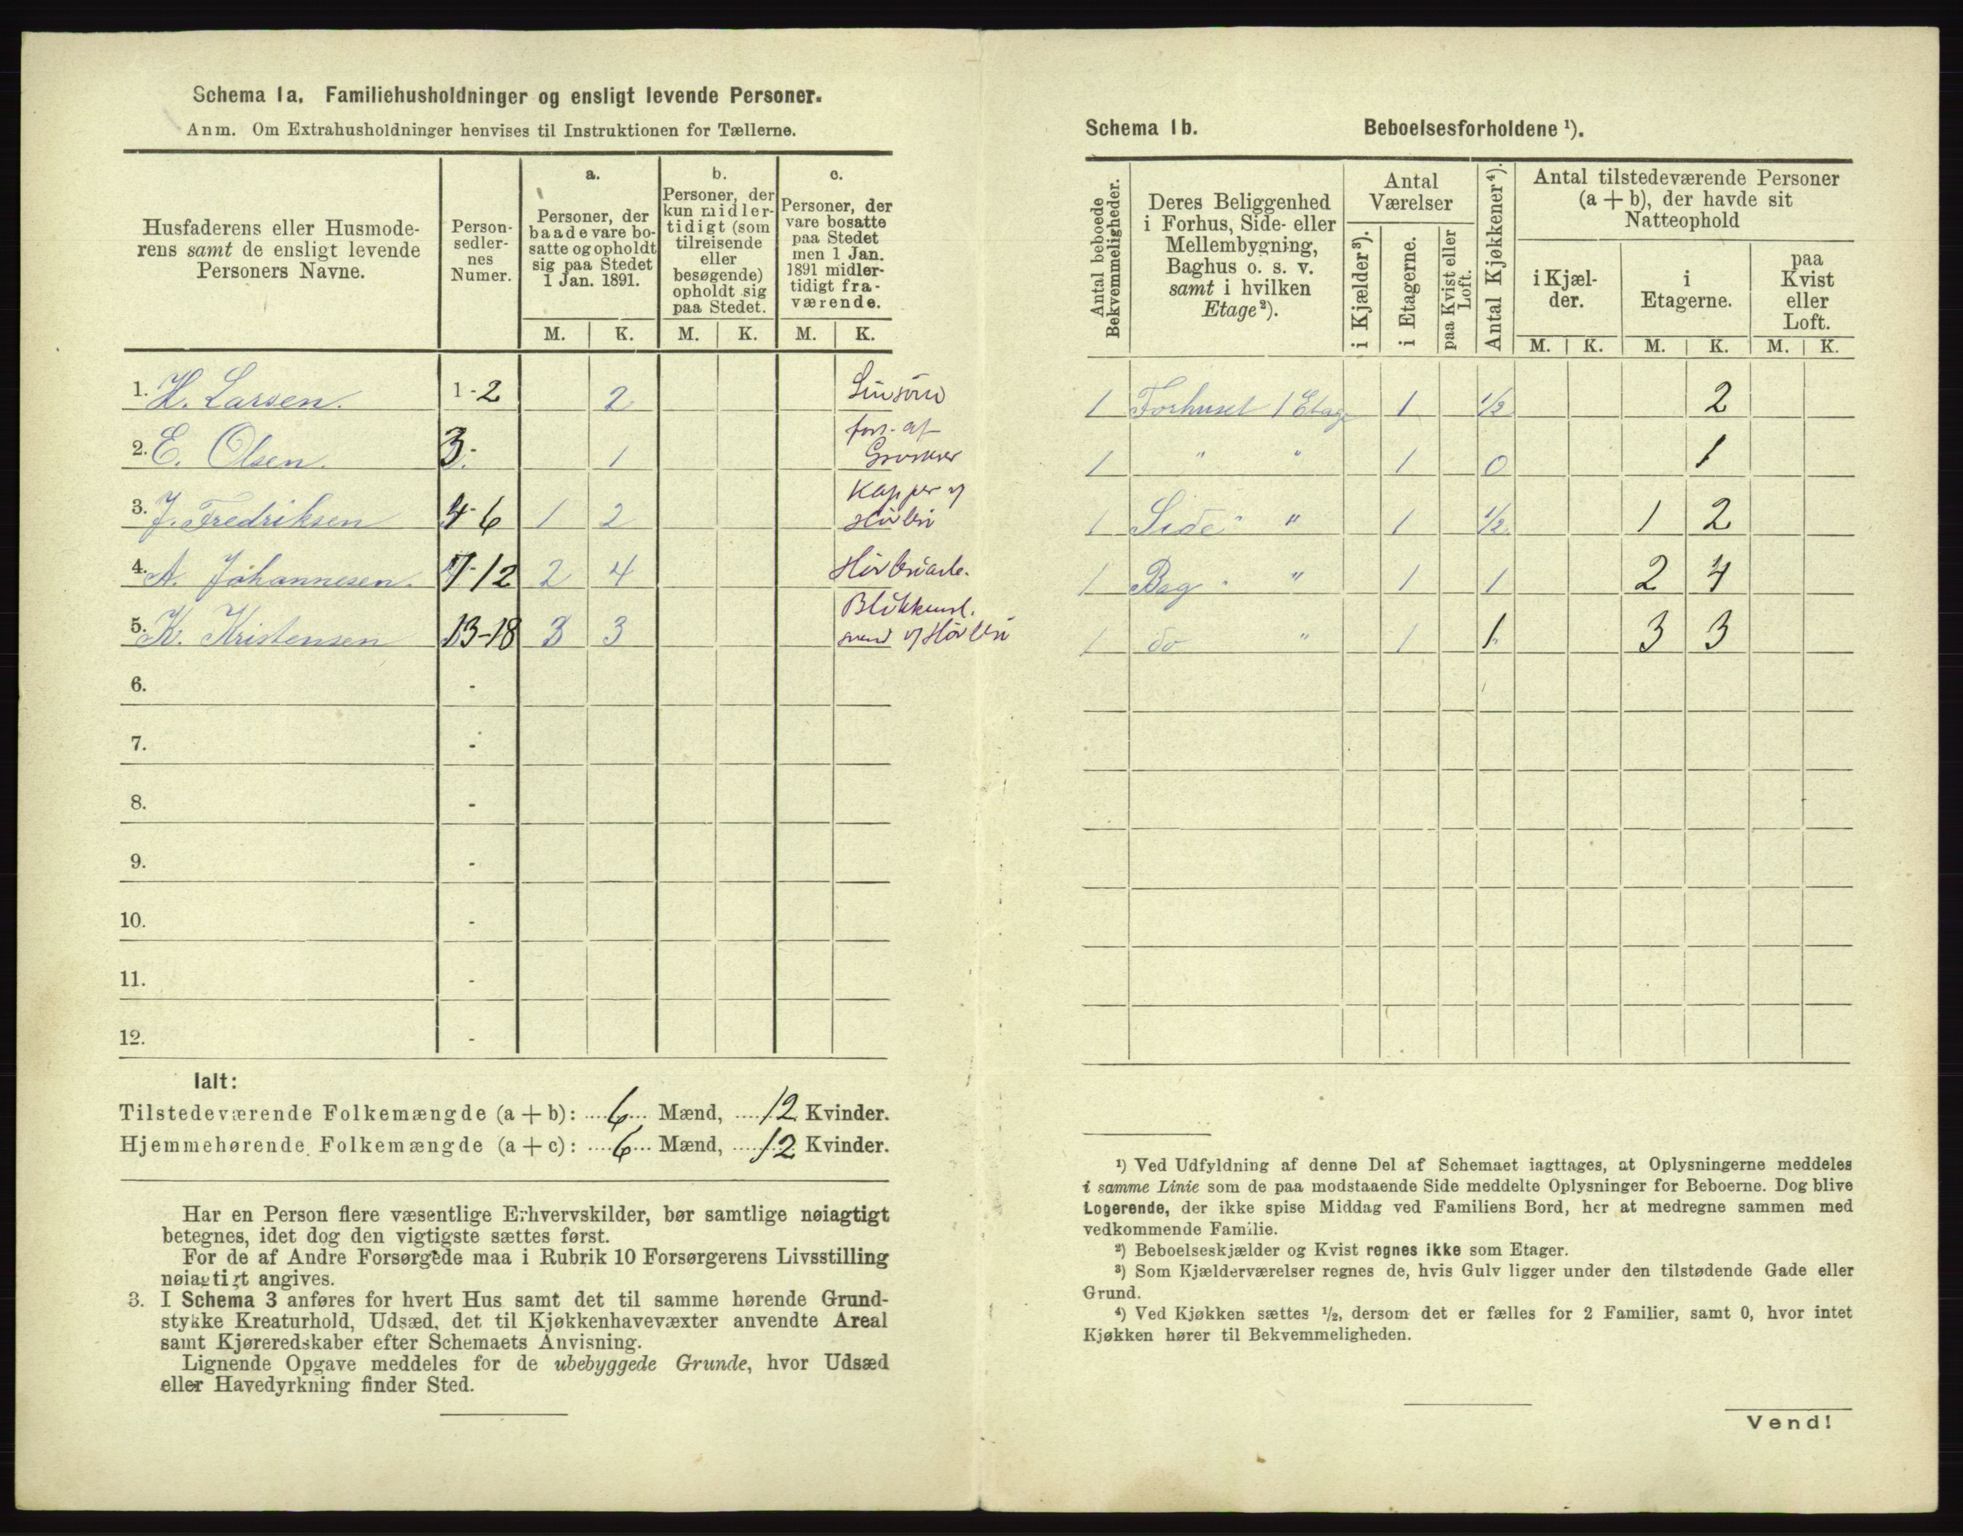 Schema 1a. Familiehusholdninger og ensligt levende Personer.
Anm. Om Extrahusholdninger henvises til Instruktionen for Tællerne.
Husfaderens eller Husmode-
rens samt de ensligt levende
Personers Navne.
Person-
sedler-
nes
Numer.
a.
Personer, der
baade vare bo-
satte og opholdt
sig paa Stedet
1 Jan. 1891.
b.
Personer, der
kun midler-
tidigt (som
tilreisende
eller
besøgende)
opholdt sig
paa Stedet.
c.
Personer, der
vare bosatte
paa Stedet
men 1 Jan.
1891 midler-
tidigt fra-
værende.
M. K. M. K. M. K.
1. H. Larsen. 1-2 2
2. E. Olsen. 3- 1 fors. af
3. J. Fredriksen 4-6 1 2
4. A. Johannesen. 7-12 2 4
5. K. Kristensen 13-18 3 3
6. -
7. -
8. -
9. -
10. -
11. -
12. -
Ialt:
Tilstedeværende Folkemængde (a + b): 6 Mænd, 12 Kvinder.
Hjemmehørende Folkemængde (a + c): 6 Mænd, 12 Kvinder.
Har en Person flere væsentlige Erhvervskilder, bør samtlige nøiagtigt
betegnes, idet dog den vigtigste sættes først.
For de af Andre Forsørgede maa i Rubrik 10 Forsørgerens Livsstilling
nøiagtigt angives.
3. I Schema 3 anføres for hvert Hus samt det til samme hørende Grund-
stykke Kreaturhold, Udsæd, det til Kjøkkenhavevæxter anvendte Areal
samt Kjøreredskaber efter Schemaets Anvisning.
Lignende Opgave meddeles for de ubebyggede Grunde, hvor Udsæd
eller Havedyrkning finder Sted.
Schema 1b. Beboelsesforholdene ¹).
Antal beboede
Bekvemmeligheder.
Deres Beliggenhed
i Forhus, Side- eller
Mellembygning,
Baghus o. s. v.
samt i hvilken
Etage²).
Antal
Værelser
i Kjælder³).
i Etagerne.
paa Kvist eller
Loft.
Antal Kjøkkener⁴).
Antal tilstedeværende Personer
(a + b), der havde sit
Natteophold
i Kjæl-
der.
i
Etagerne.
paa
Kvist
eller
Loft.
M. K. M. K. M. K.
1 Forhuset 1 Etage 1 1/2 2
1 " " 1 0 1
1 Side " " 1 1/2 1 2
1 Bag " " 1 1 2 4
1 do " 1 1 3 3
¹) Ved Udfyldning af denne Del af Schemaet iagttages, at Oplysningerne meddeles
i samme Linie som de paa modstaaende Side meddelte Oplysninger for Beboerne. Dog blive
Logerende, der ikke spise Middag ved Familiens Bord, her at medregne sammen med
vedkommende Familie.
²) Beboelseskjælder og Kvist regnes ikke som Etager.
³) Som Kjælderværelser regnes de, hvis Gulv ligger under den tilstødende Gade eller
Grund.
⁴) Ved Kjøkken sættes 1/2, dersom det er fælles for 2 Familier, samt 0, hvor intet
Kjøkken hører til Bekvemmeligheden.
Vend!